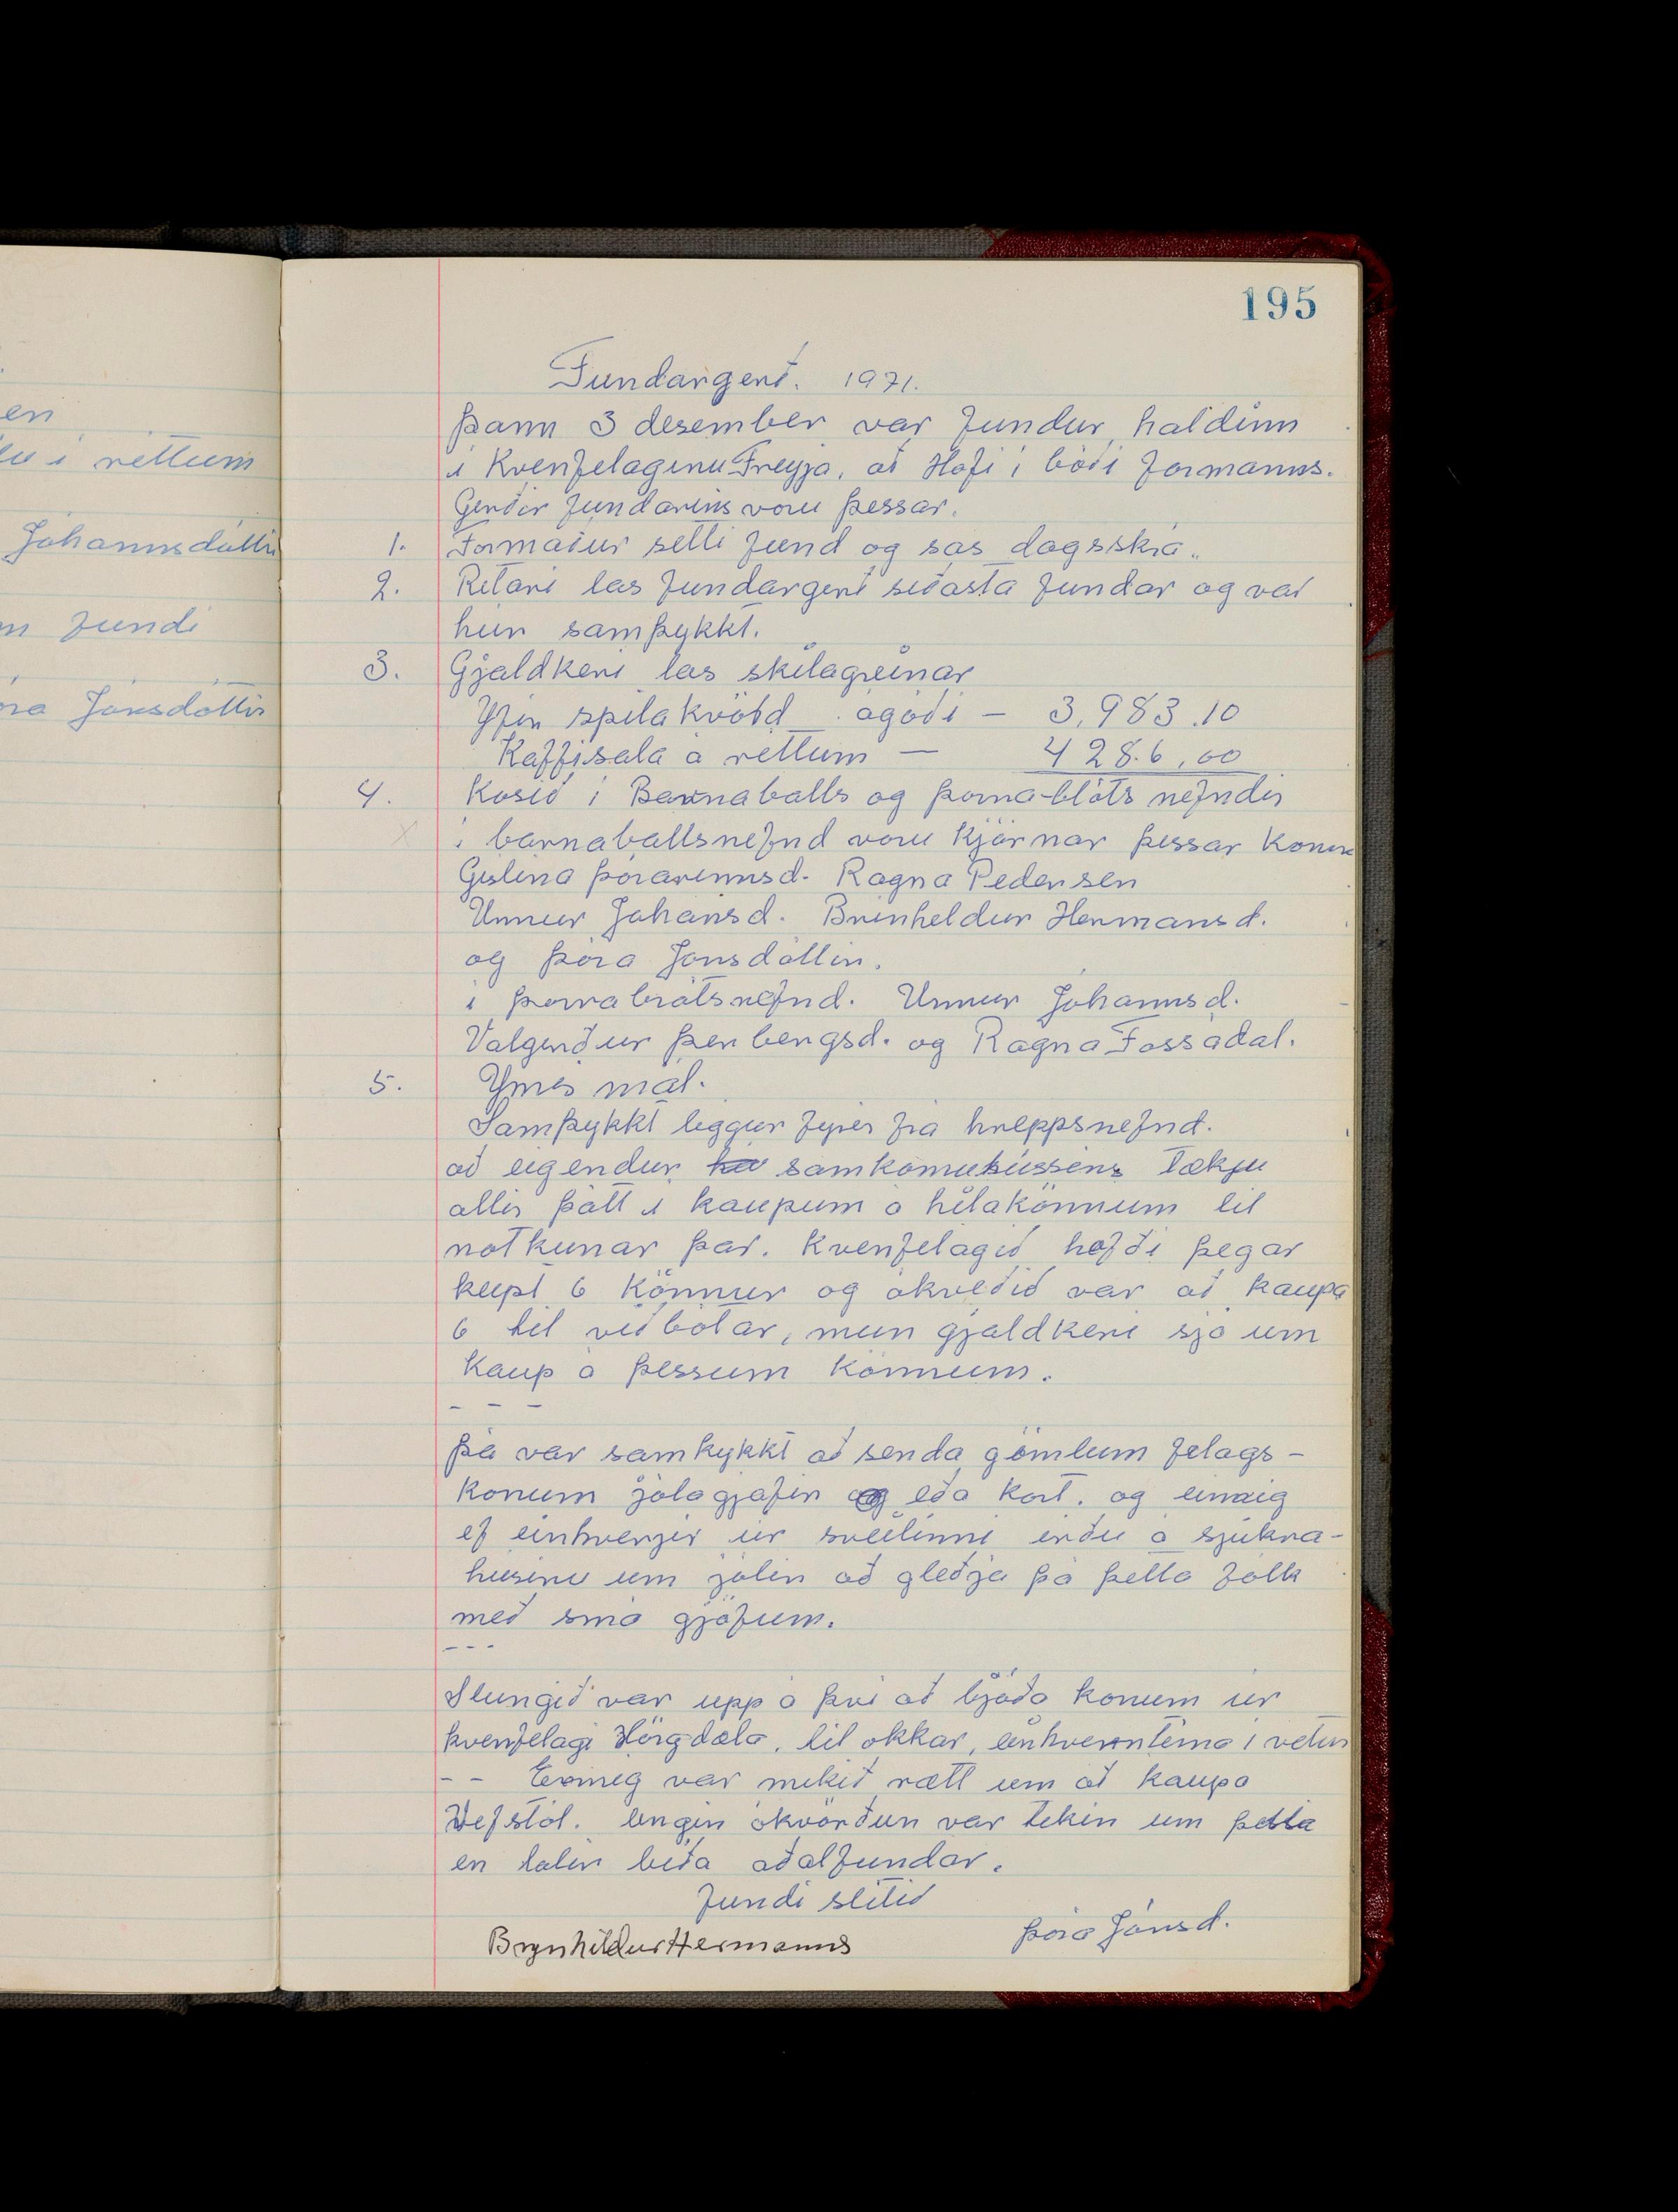 195
en
í réttum
Jóhannsdóttir
fundi
Jónsdóttir
Fundargerð. 1971.
Þann 3 desember var fundur haldinn
í Kvenfelaginu Freyja, að Hofi í boði formanns.
Gerðir fundarins voru þessar.
1. Formaður setti fund og las dagsskrá.
2. Ritari las fundargerð síðasta fundar og var
hún samþykkt.
3. Gjaldkeri las skilagreinar
Yfir spilakvöld ágóði - 3,983.10
Kaffisala á réttum - 4286,00
4. Kosið í Barnaballs og þorra-blóts nefndir
í barnaballsnefnd voru kjörnar þessar konur
Gíslína Þórarinnsd. Ragna Pedersen
Unnur Jóhansd. Brinheldur Hermansd.
og Þóra Jónsdóttir.
í þorrablótsnefnd. Unnur Jóhannsd.
Valgerður Þorbergsd. og Ragna Fossádal.
5. Ýmis mál.
Samþykkt liggur fyrir frá hreppsnefnd.
að eigendur samkomuhússins tækju
allir þátt í kaupum á hitakönnum til
notkunar þar. Kvenfelagið hafði þegar
keypt 6 könnur og ákveðið var að kaupa
6 til viðbótar, mun gjaldkeri sjá um
kaup á þessum könnum.
- - -
Þá var samþykkt að senda gömlum felags-
konum jólagjafir eða kort. og einnig
ef einhverjir úr sveitinni erðu á sjúkra-
húsinu um jólin að gleðja þá þetta fólk
með smá gjöfum.
- - -
Stungið var upp á því að bjóða konum úr
kvenfelagi Hörgdæla, til okkar, einhverntíma í vetur
- - Einnig var mikið rætt um að kaupa
Vefstól. engin ákvörðun var tekin um þetta
en látin bíða aðalfundar.
Fundi slitið
Brynhildur Hermanns
Þóra Jónsd.